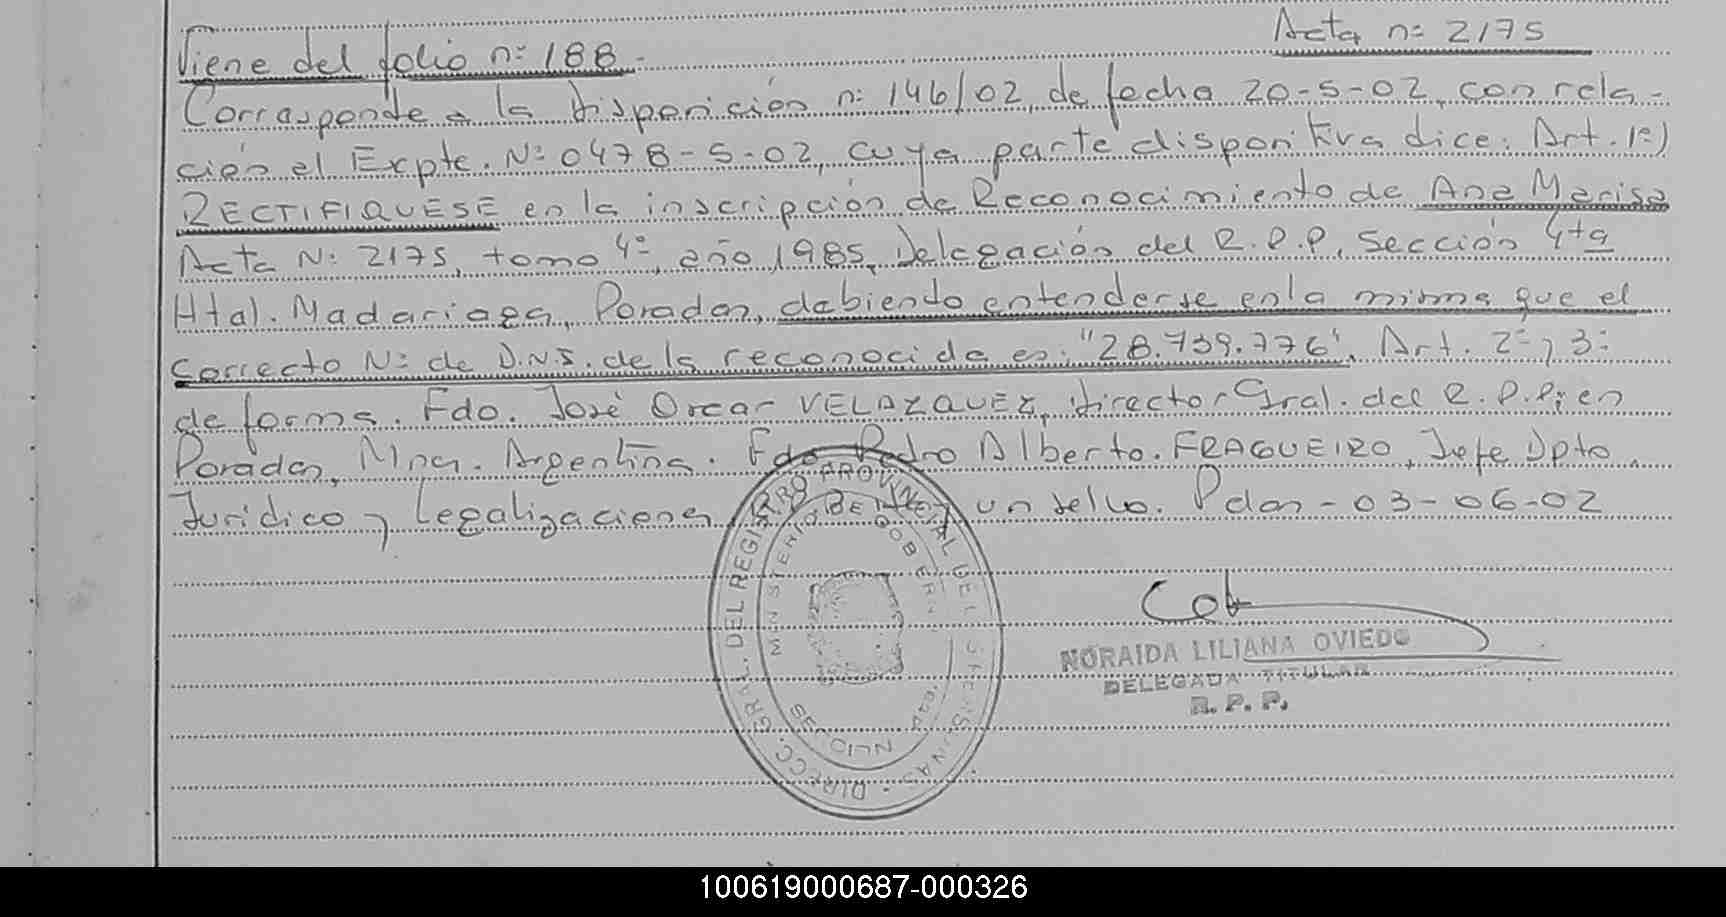 Viene del folio n: 188.-
Acta n: 2175
Corresponde a la Disposición n: 146/02, de fecha 20-5-02, con rela-
ción el Expte. N: 0478-S-02, cuya parte dispositiva dice: Art. 1º)
RECTIFIQUESE en la inscripción de Reconocimiento de Ana Marisa
Acta N: 2175, tomo 4º, año 1985, Delegación del R.P.P, Sección 4ta
Htal. Madariaga, Posadas, debiendo entenderse en la misma que el
correcto N: de D.N.I. de la reconocida es: "28.739.776". Art. 2º y 3º
de forma. Fdo. José Oscar VELAZQUEZ, Director Gral. del R.P.P; en
Posadas, Mnes. Argentina. Fdo Pedro Alberto. FRAGUEIRO, Jefe Dpto.
Jurídico y Legalizaciones un sello. Pdas-03-06-02
DIRECC. GRAL. DEL REGISTRO PROVINCIAL DE LAS PERSONAS
MINISTERIO DE GOBIERNO
MISIONES
NORAIDA LILIANA OVIEDO
DELEGADA TITULAR
R. P. P.
100619000687-000326